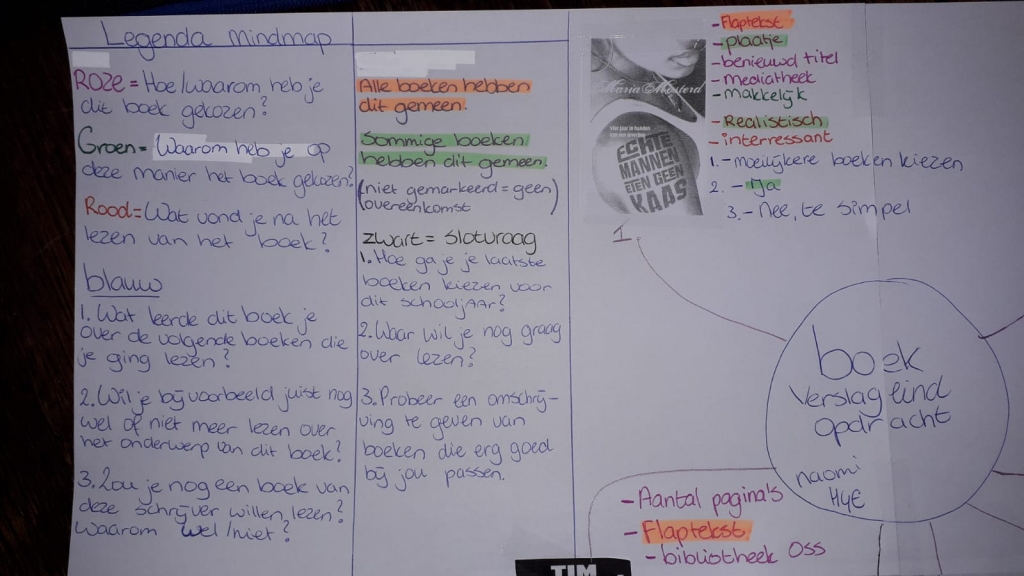 Legenda mindmap
Roze = Hoe/waarom heb je
dit boek gekozen?
Groen = Waarom heb je op
deze manier het boek gekozen?
Rood = Wat vond je na het
lezen van het boek?
blauw
1. Wat leerde dit boek je
over de volgende boeken die
je ging lezen?
2. Wil je bijvoorbeeld juist nog
wel of niet meer lezen over
het onderwerp van dit boek?
3. Zou je nog een boek van
deze schrijver willen lezen?
Waarom wel/niet?
Alle boeken hebben
dit gemeen.
Sommige boeken
hebben dit gemeen.
(niet gemarkeerd = geen
overeenkomst)
zwart = slotvraag
1. Hoe ga je je laatste
boeken kiezen voor
dit schooljaar?
2. Waar wil je nog graag
over lezen?
3. Probeer een omschrij-
ving te geven van
boeken die erg goed
bij jou passen.
Maria Mosterd
Vier jaar in handen
van een loverboy
ECHTE
MANNEN
ETEN GEEN
KAAS
1
- Flaptekst
- plaatje
- benieuwd titel
- mediatheek
- makkelijk
- Realistisch
- interressant
1. - moeilijkere boeken kiezen
2. - Ja
3. - Nee, te simpel
boek
verslag eind
opdracht
naomi
H4E
- Aantal pagina's
- Flaptekst
- bibliotheek Oss
TIM